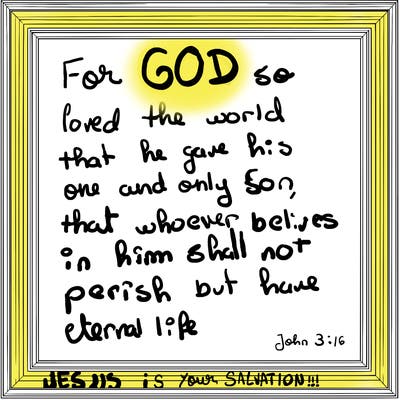 For GOD so
loved the world
that he gave his
one and only Son,
that whoever belives
in him shall not
perish but have
eternal life
John 3:16
JESUS is your SALVATION!!!